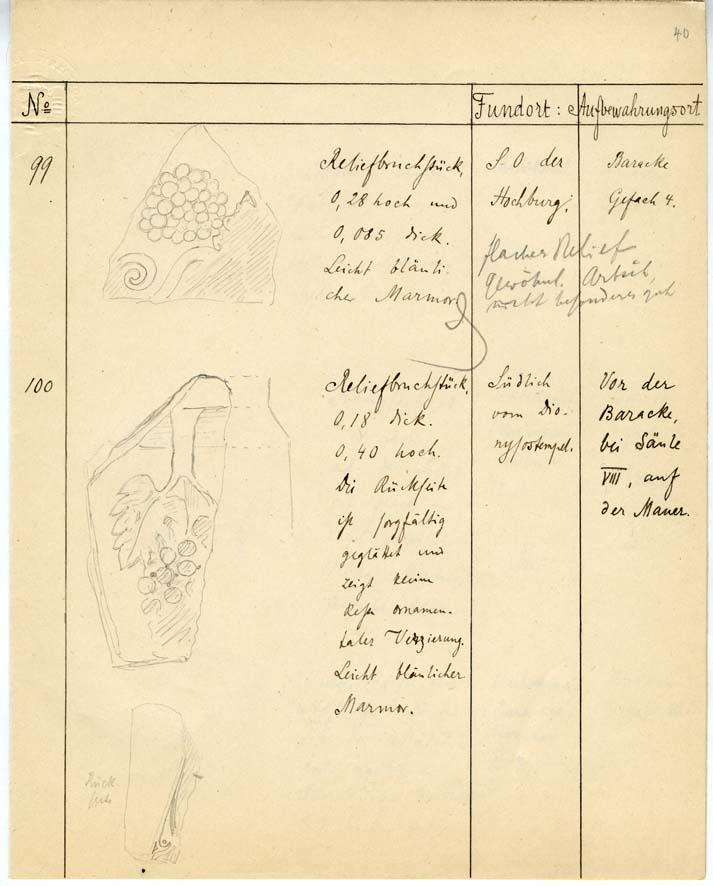 40
No Fundort: Aufbewahrungsort
99
Reliefbruchstück,
0,28 hoch und
0,085 dick.
Leicht bläuli-
cher Marmor.
S. O der
Hochburg.
Baracke
Gefach 4.
flaches Relief
gewöhnl. Arbeit,
nicht besonders gut
100
Reliefbruchstück,
0,18 dick.
0,40 hoch.
Die Rückseite
ist sorgfältig
geglättet und
zeigt keine
Reste ornamen-
taler Verzierung.
Leicht bläulicher
Marmor.
Südlich
vom Dio-
nysostempel.
Vor der
Baracke,
bei Säule
VIII, auf
der Mauer.
Rück-
seite